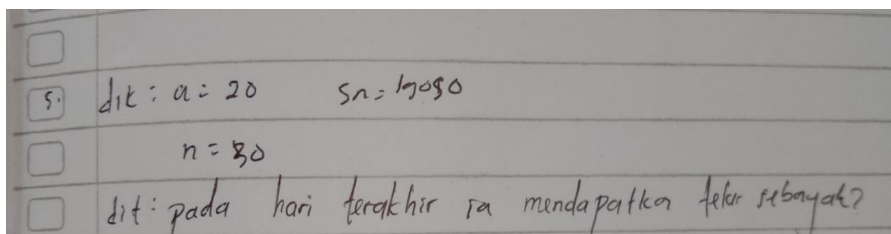 5. dit : a = 20 Sn =
n = 30
dit : pada hari terakhir ia mendapatkan telur sebanyak?